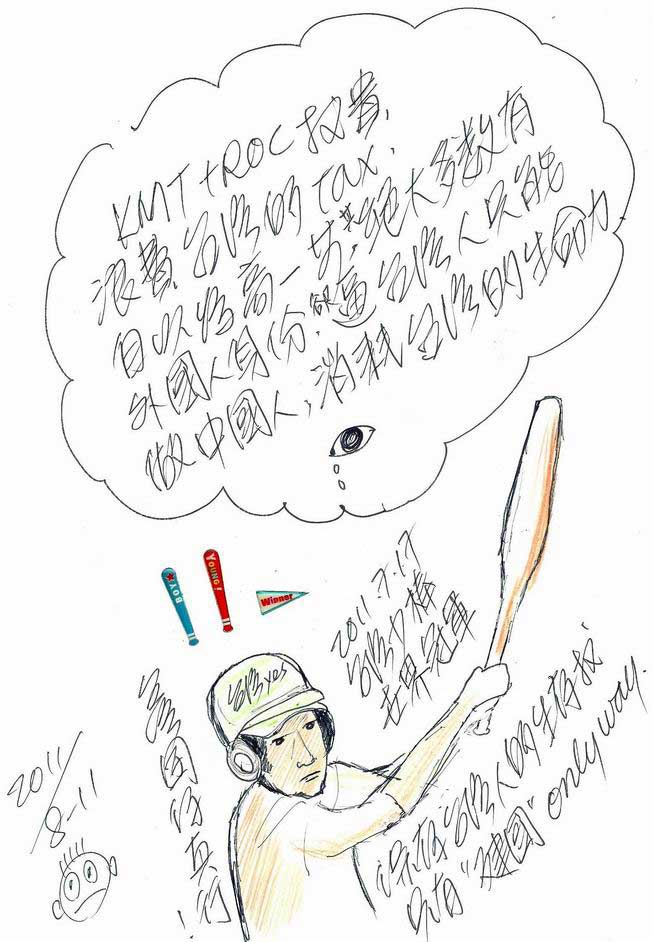 KMT+ROC 权貴,
浪費台灣的 TAX,
自以為高一等,其絕大多數有
外國人身份,卻逼台灣人只能
做中國人,消耗台灣的生命力
BOY
YOUNG!
Winner
2011.7.17
台灣少棒
世界冠軍
台灣yes
國仔真行!
台灣人的生存权
只有"建國"only way.
2011/8-11